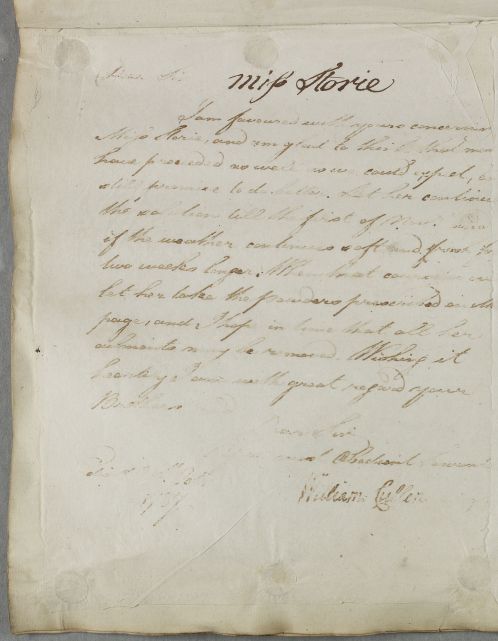 Dear Sir
Miss Storie
I am favoured with yours concerning
Miss Storie, and am glad to think that
have proceeded as well as we could expect,
still promise to do better. Let her continue
the solution till the first of Novr.
if the weather continues soft and for
two weeks longer. When that
let her take the powders prescribed on
page, and I hope in time that all her
ailments may be removed. Wishing it
heartily I am with great regard your
Brothers
Dear Sir
most Obedient Servant
William Cullen